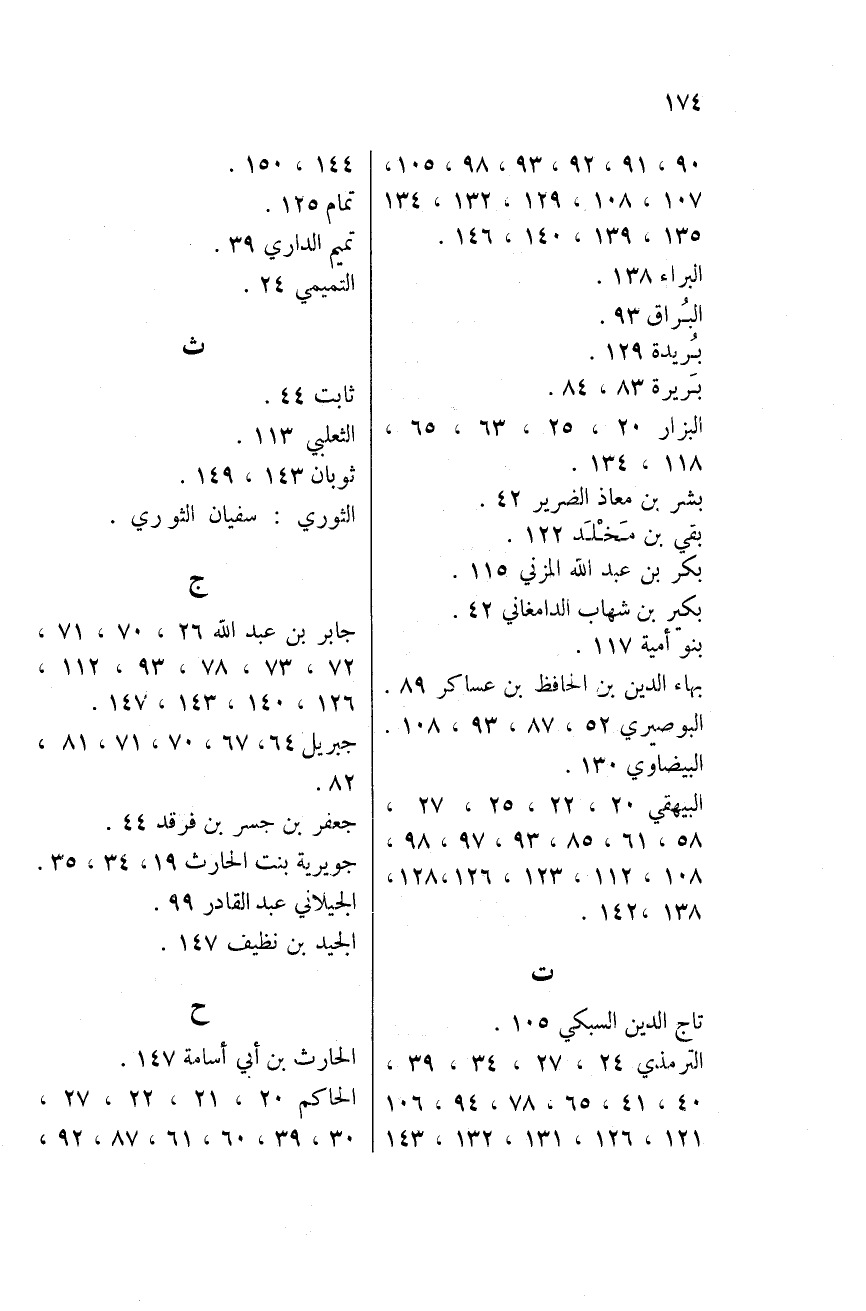 ١٧٤
٩٠ ، ٩١ ، ٩٢ ، ٩٣ ، ٩٨ ، ١٠٥ ،
١٠٧ ، ١٠٨ ، ١٢٩ ، ١٣٢ ، ١٣٤
١٣٥ ، ١٣٩ ، ١٤٠ ، ١٤٦ .
البراء ١٣٨ .
البُراق ٩٣ .
بُريدة ١٢٩ .
بَريرة ٨٣ ، ٨٤ .
البزار ٢٠ ، ٢٥ ، ٦٣ ، ٦٥ ،
١١٨ ، ١٣٤ .
بشر بن معاذ الضرير ٤٢ .
بقي بن مَخْلَد ١٢٢ .
بكر بن عبد الله المزني ١١٥ .
بكير بن شهاب الدامغاني ٤٢ .
بنو أمية ١١٧ .
بهاء الدين بن الحافظ بن عساكر ٨٩ .
البوصيري ٥٢ ، ٨٧ ، ٩٣ ، ١٠٨ .
البيضاوي ١٣٠ .
البيهقي ٢٠ ، ٢٢ ، ٢٥ ، ٢٧ ،
٥٨ ، ٦١ ، ٨٥ ، ٩٣ ، ٩٧ ، ٩٨ ،
١٠٨ ، ١١٢ ، ١٢٣ ، ١٢٦ ،١٢٨ ،
١٣٨ ،١٤٢ .
ت
تاج الدين السبكي ١٠٥ .
الترمذي ٢٤ ، ٢٧ ، ٣٤ ، ٣٩ ،
٤٠ ، ٤١ ، ٦٥ ، ٧٨ ، ٩٤ ، ١٠٦
١٢١ ، ١٢٦ ، ١٣١ ، ١٣٢ ، ١٤٣
١٤٤ ، ١٥٠ .
تمام ١٢٥ .
تميم الداري ٣٩ .
التميمي ٢٤ .
ث
ثابت ٤٤ .
الثعلبي ١١٣ .
ثوبان ١٤٣ ، ١٤٩ .
الثوري : سفيان الثوري .
ج
جابر بن عبد الله ٢٦ ، ٧٠ ، ٧١ ،
٧٢ ، ٧٣ ، ٧٨ ، ٩٣ ، ١١٢ ،
١٢٦ ، ١٤٠ ، ١٤٣ ، ١٤٧ .
جبريل ٦٤ ، ٦٧ ، ٧٠ ، ٧١ ، ٨١ ،
٨٢ .
جعفر بن جسر بن فرقد ٤٤ .
جويرية بنت الحارث ١٩ ، ٣٤ ، ٣٥ .
الجيلاني عبد القادر ٩٩ .
الجيد بن نظيف ١٤٧ .
ح
الحارث بن أبي أسامة ١٤٧ .
الحاكم ٢٠ ، ٢١ ، ٢٢ ، ٢٧ ،
٣٠ ، ٣٩ ، ٦٠ ، ٦١ ، ٨٧ ، ٩٢ ،